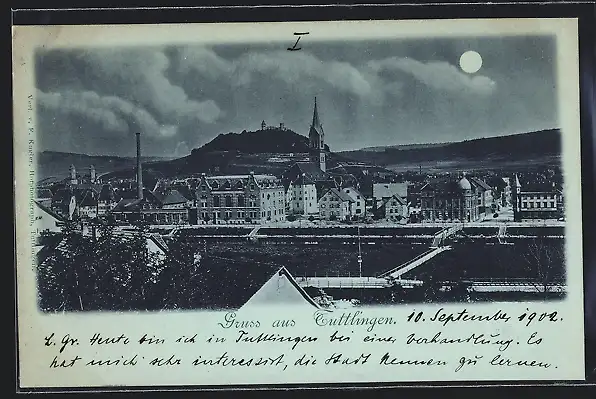 I
Gruss aus Tuttlingen. 10. September 1902.
L. Gr. Heute bin ich in Tuttlingen bei einer Verhandlung. Es
hat mich sehr interessirt, die Stadt kennen zu lernen.